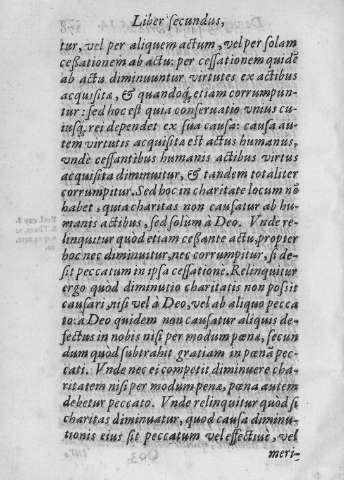 Liber secundus,
tur, vel per aliquem actum, vel per solam
cessationem ab actu: per cessationem quidē
ab actu diminuuntur virtutes ex actibus
acquisita, & quandoq; etiam corrumpun-
tur: sed hoc est quia conseruatio vnius cu-
iusq; rei dependet ex sua causa: causa au-
tem virtutis acquisita est actus humanus,
vndè cessantibus humanis actibus virtus
acquisita diminuitur, & tandem totaliter
corrumpitur. Sed hoc in charitate locum nō
habet, quia charitas non causatur ab hu-
manis actibus, sed solum à Deo. Vnde re-
linquitur quòd etiam cessante actu, propter
hoc nec diminuitur, nec corrumpitur, si de-
sit peccatum in ipsa cessatione. Relinquitur
ergo quòd diminutio charitatis non possit
causari, nisi vel à Deo, vel ab aliquo pecca
to: à Deo quidem non causatur aliquis de-
fectus in nobis nisi per modum pœna, secun
dum quod subtrahit gratiam in pœnā pec-
cati. Vnde nec ei competit diminuere cha-
ritatem nisi per modum pena, pœna autem
debetur peccato. Vnde relinquitur quòd si
charitas diminuatur, quod causa diminu-
tionis eius sit peccatum vel effectiuè, vel
meri-